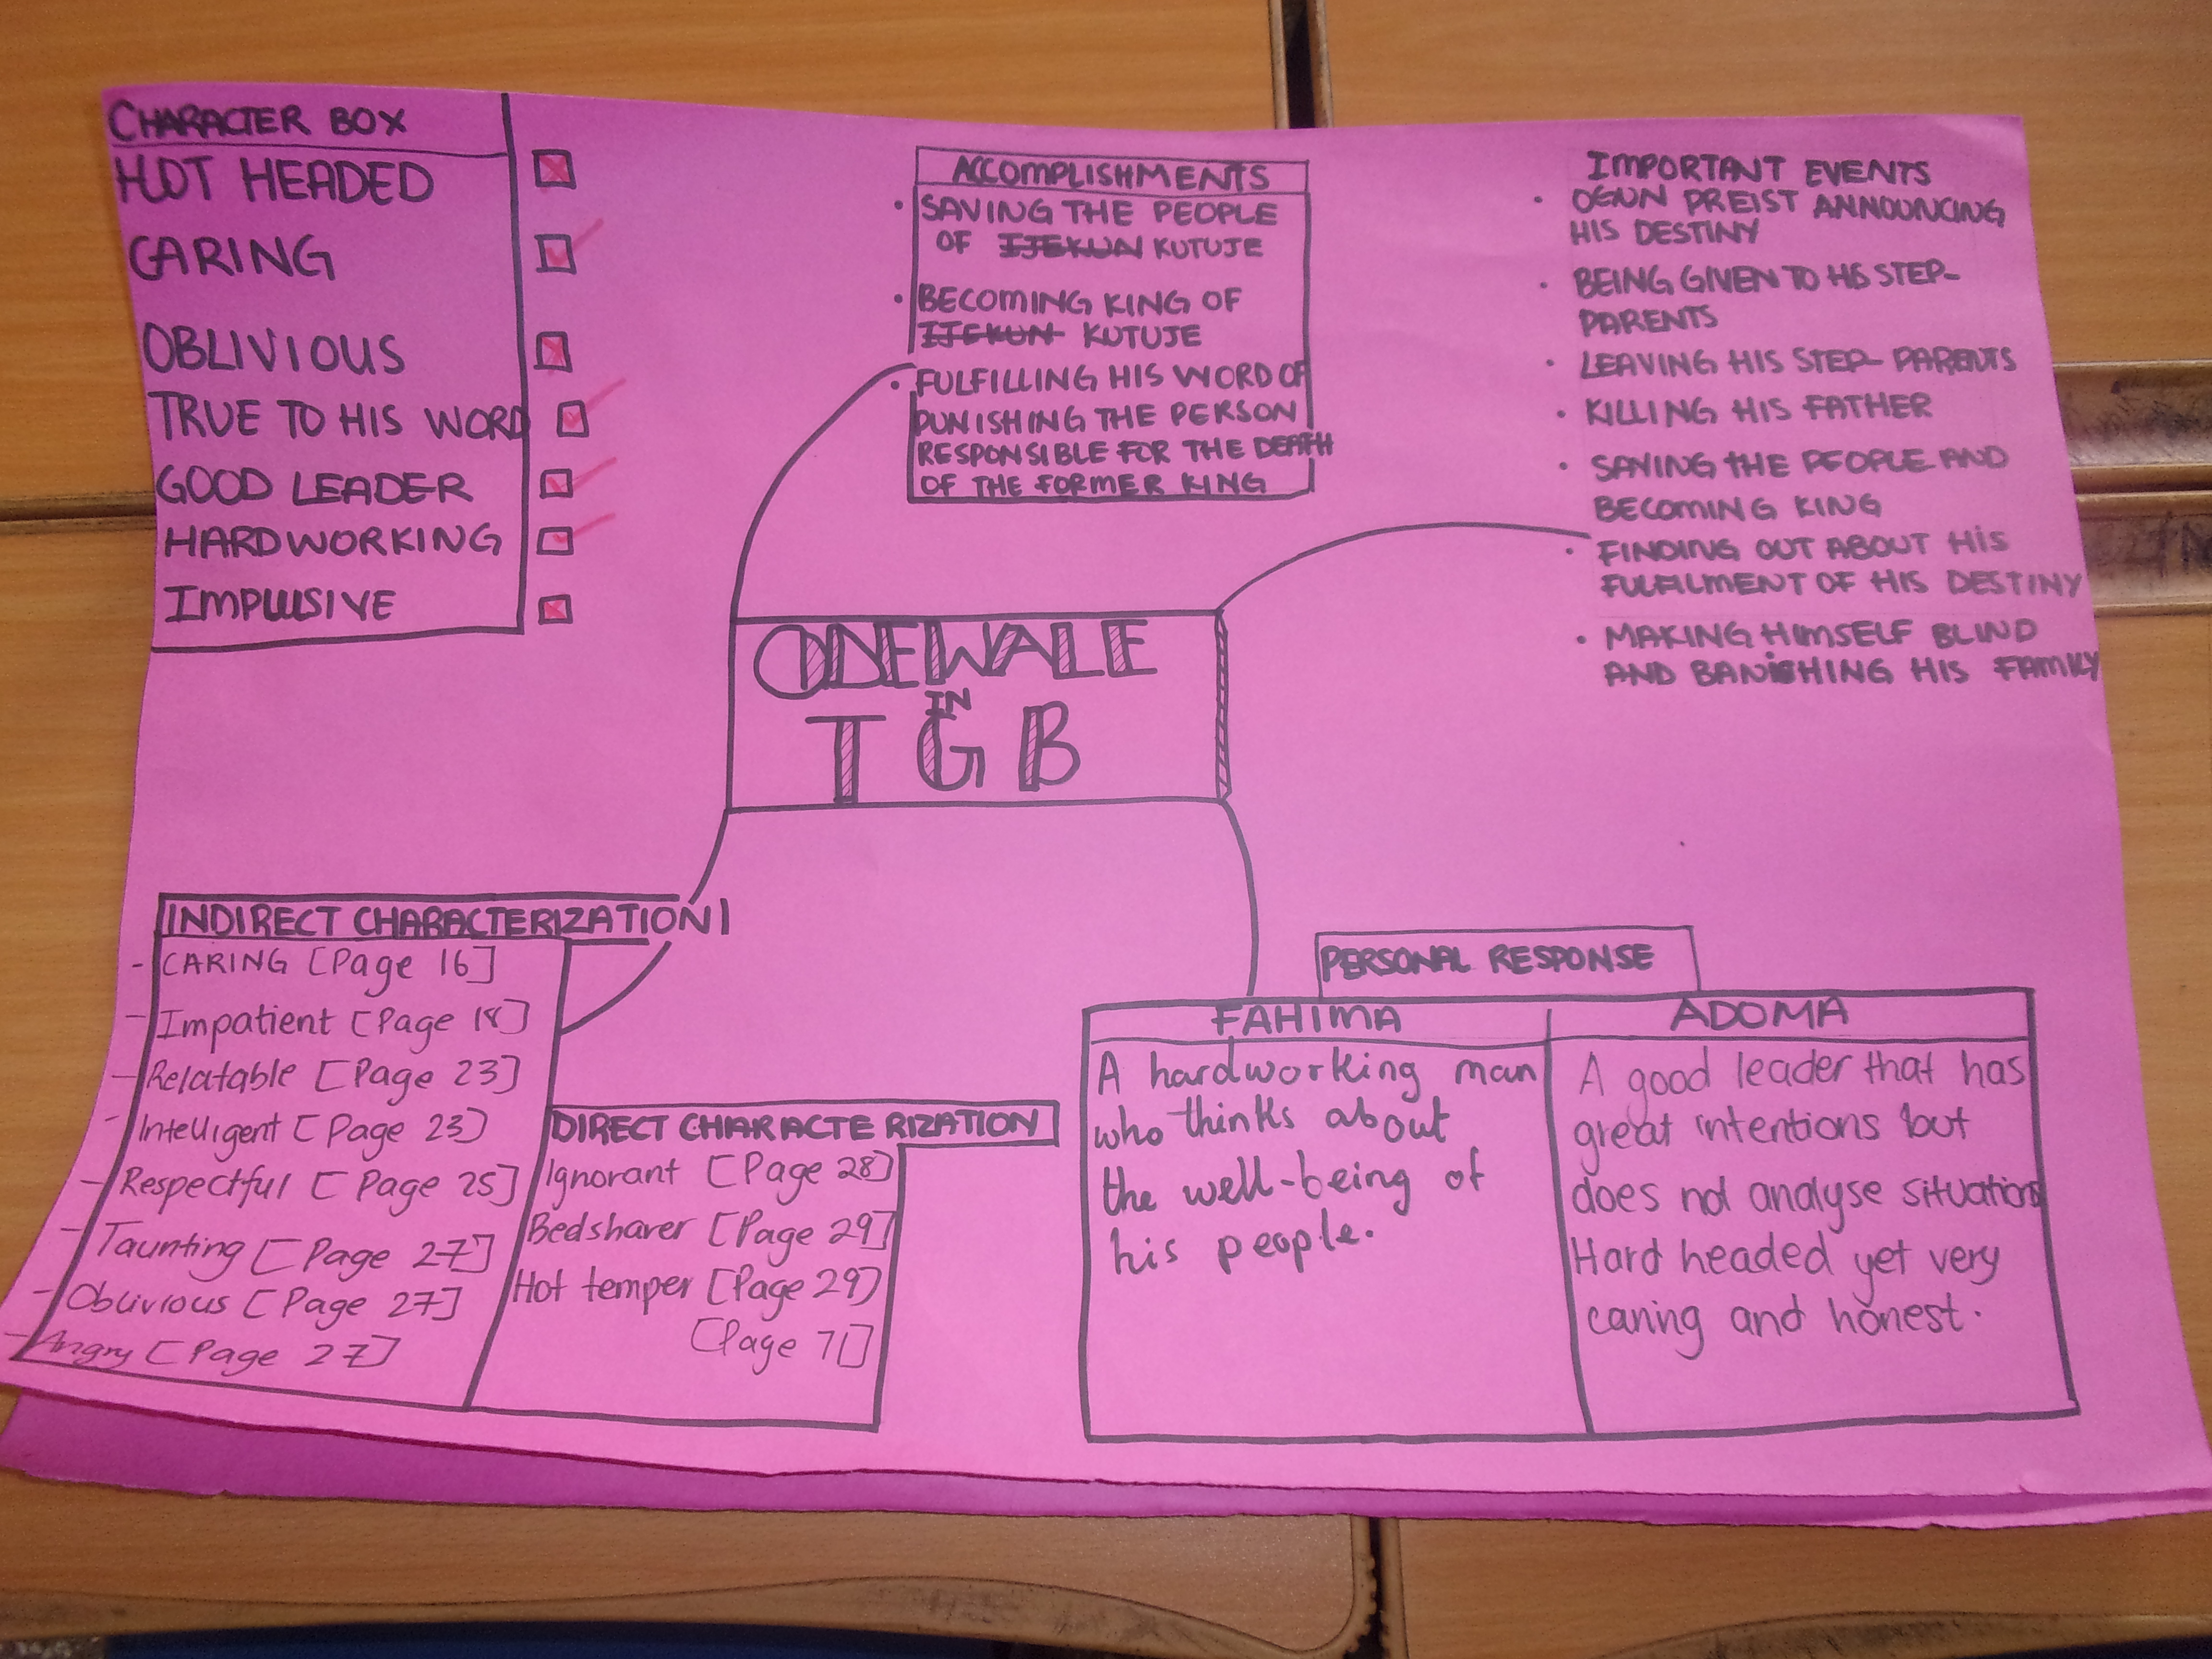 CHARACTER BOX
HOT HEADED
CARING
OBLIVIOUS
TRUE TO HIS WORD
GOOD LEADER
HARDWORKING
IMPULSIVE
ACCOMPLISHMENTS
• SAVING THE PEOPLE
OF IJEKUN KUTUJE
• BECOMING KING OF
IJEKUN KUTUJE
• FULFILLING HIS WORD OF
PUNISHING THE PERSON
RESPONSIBLE FOR THE DEATH
OF THE FORMER KING
IMPORTANT EVENTS
• OGUN PREIST ANNOUNCING
HIS DESTINY
• BEING GIVEN TO HIS STEP-
PARENTS
• LEAVING HIS STEP-PARENTS
• KILLING HIS FATHER
• SAVING THE PEOPLE AND
BECOMING KING
• FINDING OUT ABOUT HIS
FULFILMENT OF HIS DESTINY
• MAKING HIMSELF BLIND
AND BANISHING HIS FAMILY
ODEWALE
IN
TGB
INDIRECT CHARACTERIZATION
- CARING [Page 16]
- Impatient [Page 18]
- Relatable [Page 23]
- Intelligent [Page 23]
- Respectful [Page 25]
- Taunting [Page 27]
- Oblivious [Page 27]
- Angry [Page 27]
DIRECT CHARACTERIZATION
Ignorant [Page 28]
Bedsharer [Page 29]
Hot temper [Page 29]
[Page 71]
PERSONAL RESPONSE
FAHIMA
A hardworking man
who thinks about
the well-being of
his people.
ADOMA
A good leader that has
great intentions but
does not analyse situations
Hard headed yet very
caring and honest.